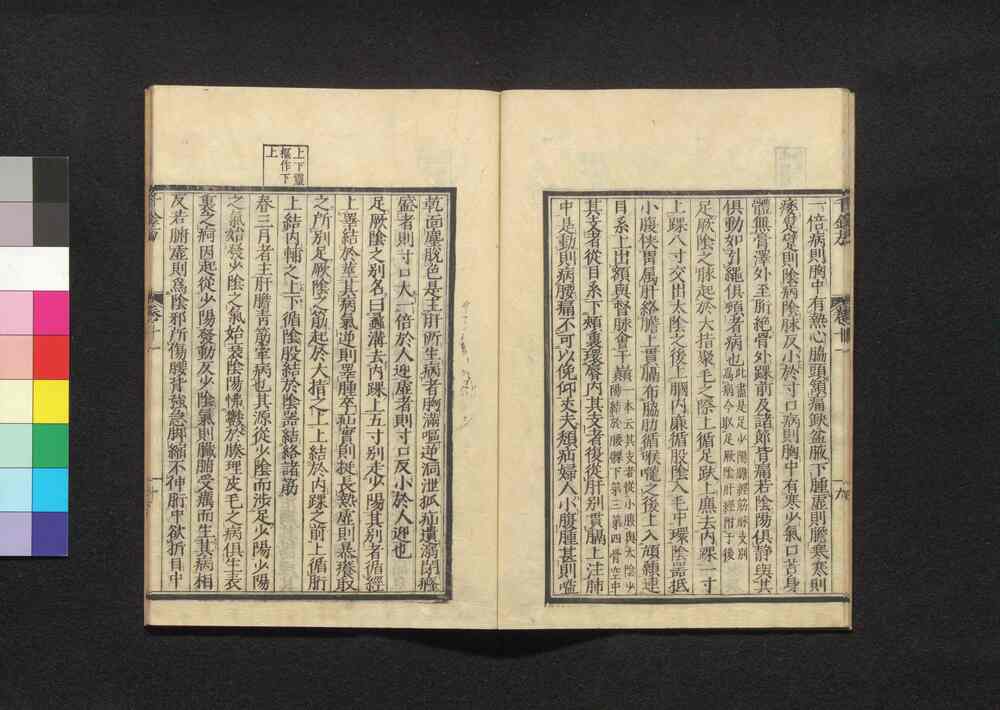 一倍病則胸中有熱心脇頭頷痛缺盆腋下腫虛則膽寒寒則
痿躄躄則陰病陰脉反小於寸口病則胸中有寒少氣口苦身
體無膏澤外至胻絕骨外踝前及諸節皆痛若陰陽俱靜與其
俱動如引繩俱頓者病也此盡是足少陽膽經筋脉支別
為病今取足厥陰肝經附于後
足厥陰之脉起於大指聚毛之際上循足趺上廉去內踝一寸
上踝八寸交出太陰之後上膕內廉循股陰入毛中環陰器抵
小腹俠胃屬肝絡膽上貫膈布脇肋循喉嚨之後上入頏顙連
目系上出額與督脉會于巔一本云其支者從小腹與太陰少
陽結於腰髁下第三第四骨空中
其支者從目系下頰裏環脣內其支者復從肝別貫膈上注肺
中是動則病腰痛不可以俛仰丈夫㿗疝婦人小腹腫甚則嗌
乾面塵脫色是主肝所生病者胸滿嘔逆洞泄狐疝遺溺閉癃
盛者則寸口大一倍於人迎虛者則寸口反小於人迎也
足厥陰之別名曰蠡溝去內踝上五寸別走少陽其別者循經
上睪結於莖其病氣逆則睪腫卒疝實則挺長熱虛則暴癢取
之所別足厥陰之筋起於大指之上上結於內踝之前上循胻
上結內輔之上下循陰股結於陰器結絡諸筋
春三月者主肝膽青筋牽病也其源從少陰而涉足少陽少陽
之氣始發少陰之氣始衰陰陽怫鬱於腠理皮毛之病俱生表
裏之痾因起從少陽發動反少陰氣則臟腑受癘而生其病相
反若腑虛則為陰邪所傷腰背強急脚縮不伸胻中欲折目中
上下靈
樞作下
上